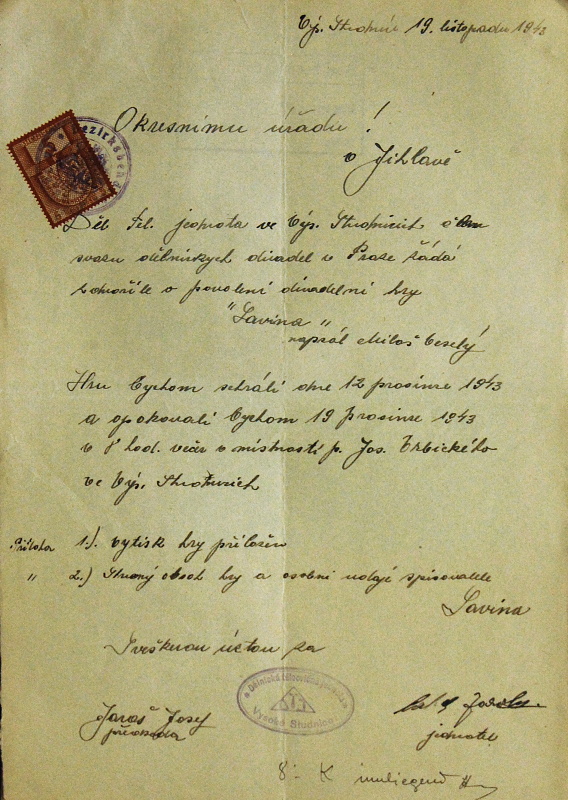 Výs. Studnice 19. listopadu 1943
Okresnímu úřadu!
v Jihlavě
Bezirksbehörd
Děl. Těl. jednota ve Výs. Studnicích člen
svazu dělnických divadel v Praze žádá
zdvořile o povolení divadelní hry
"Lavina"
napsal Miloš Veselý
Hru bychom sehráli dne 12 prosince 1943
a opakovali bychom 19 prosince 1943
v 8 hod. večer v místnosti p. Jos.
ve Výs. Studnicích
Příloha 1.). výtisk hry přiložen
" 2.) Stručný obsah hry a osobní údaje spisovatele
Lavina
S veškerou úctou za
Dělnická tělocvičná jednota
Vysoké Studnice
Jaroš Josef
předseda
jednatel
8.- K inliegend